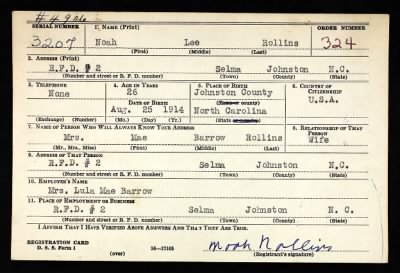 SERIAL NUMBER 1. NAME (Print) ORDER NUMBER
3207 Noah Lee Rollins 324
(First) (Middle) (Last)
2. ADDRESS (Print)
R.F.D. # 2 Selma Johnston N.C.
(Number and street or R. F. D. number) (Town) (County) (State)
3. TELEPHONE 4. AGE IN YEARS 5. PLACE OF BIRTH 6. COUNTRY OF CITIZENSHIP
None 26 Johnston County
DATE OF BIRTH (Town or county) U.S.A.
Aug. 25 1914 North Carolina
(Exchange) (Number) (Mo.) (Day) (Yr.) (State or country)
7. NAME OF PERSON WHO WILL ALWAYS KNOW YOUR ADDRESS 8. RELATIONSHIP OF THAT PERSON
Mrs. Mae Barrow Rollins Wife
(Mr., Mrs., Miss) (First) (Middle) (Last)
9. ADDRESS OF THAT PERSON
R.F.D. # 2 Selma Johnston N.C.
(Number and street or R. F. D. number) (Town) (County) (State)
10. EMPLOYER'S NAME
Mrs. Lula Mae Barrow
11. PLACE OF EMPLOYMENT OR BUSINESS
R.F.D. # 2 Selma Johnston N. C.
(Number and street or R. F. D. number) (Town) (County) (State)
I AFFIRM THAT I HAVE VERIFIED ABOVE ANSWERS AND THAT THEY ARE TRUE.
REGISTRATION CARD
D. S. S. Form 1 (over) 16—17105 Noah Rollins
(Registrant's signature)